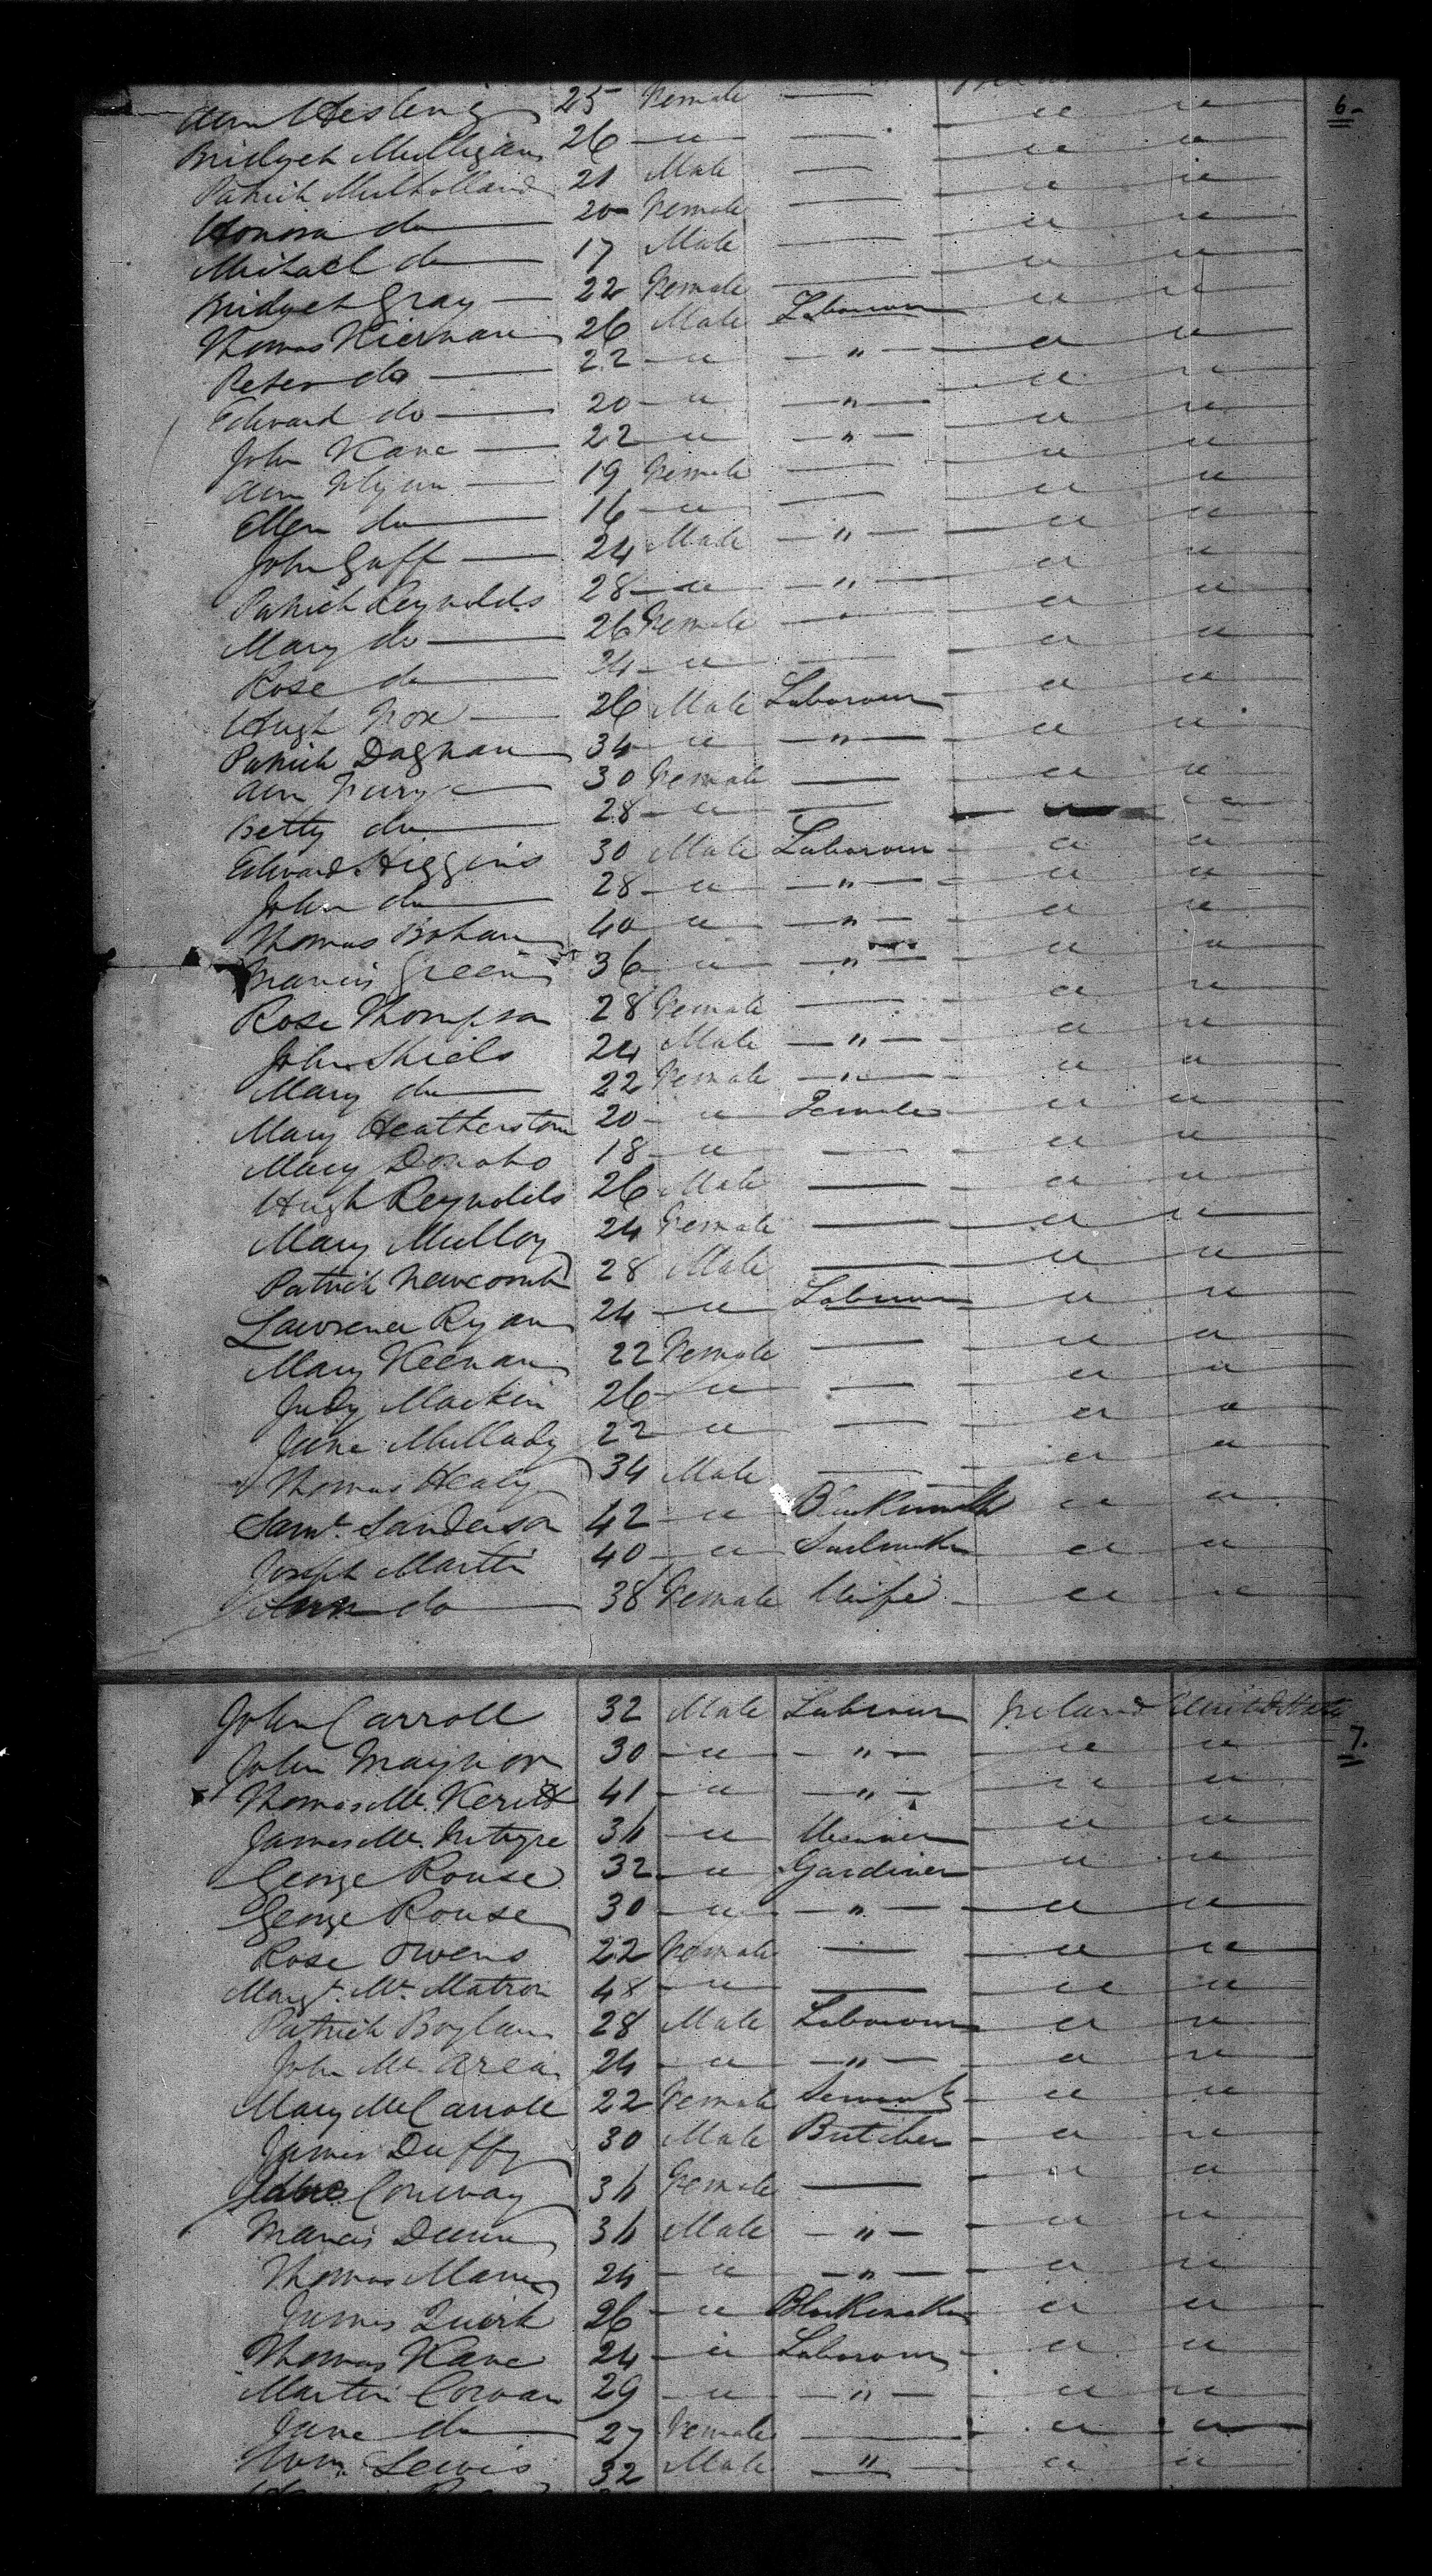 Ann Heslin 25 Female —
Bridget Mulligan 26 — " — — " " 6
Patrick Mulholland 21 Male — " "
Honora do 20 Female — " "
Michael do 17 Male — " "
Bridget Gray 22 Female — " "
Thomas Kiernan 26 Male Labourer " "
Peter do 22 " " " "
Edward do 20 " " " "
John Kane 22 " " " "
Ann Flynn 19 Female — " "
Ellen do 16 " — " "
John Guff 24 Male " " "
Patrick Reynolds 28 " " " "
Mary do 26 Female — " "
Rose do 24 " — " "
Hugh Fox 26 Male Labourer " "
Patrick Dagnan 34 " " " "
Ann Fury 30 Female — " "
Betty do 28 " — " "
Edward Higgins 30 Male Labourer " "
John do 28 " " " "
Thomas Bohan 40 " " " "
Francis Green 36 " " " "
Rose Thompson 28 Female — " "
John Shiels 24 Male " " "
Mary do 22 Female " " "
Mary Heatherston 20 " Female " "
Mary Donoho 18 " — " "
Hugh Reynolds 26 Male — " "
Mary Mulloy 24 Female — " "
Patrick Newcomb 28 Male — " "
Lawrence Ryan 24 " Labourer " "
Mary Keenan 22 Female — " "
Judy Mackin 26 " — " "
Jane Mullady 22 " — " "
Thomas Healy 34 Male — " "
Saml. Sanderson 42 " Blacksmith " "
Joseph Martin 40 " Sailmaker " "
Ann do 38 Female Wife " "
John Carroll 32 Male Labourer Ireland United States
John 30 " " " " 7.
Thomas Mc. 41 " " " "
James Mc. Intyre 36 " Weaver " "
George Rouse 32 " Gardiner " "
George Rouse 30 " " " "
Rose Owens 22 Female — " "
Margt. Mc. Matron 48 " — " "
Patrick Boylan 28 Male Labourer " "
John Mc. Area 24 " " " "
Mary McCarroll 22 Female Servant " "
James Duffy 30 Male Butcher " "
Conway 36 Female — " "
Francis Dunn 36 Male " " "
Thomas 24 " " " "
James Quirk 26 " " "
Thomas Kane 24 " Labourer " "
Martin Corvan 29 " " " "
Jane do 27 Female — " "
Wm. Lewis 32 Male " " "